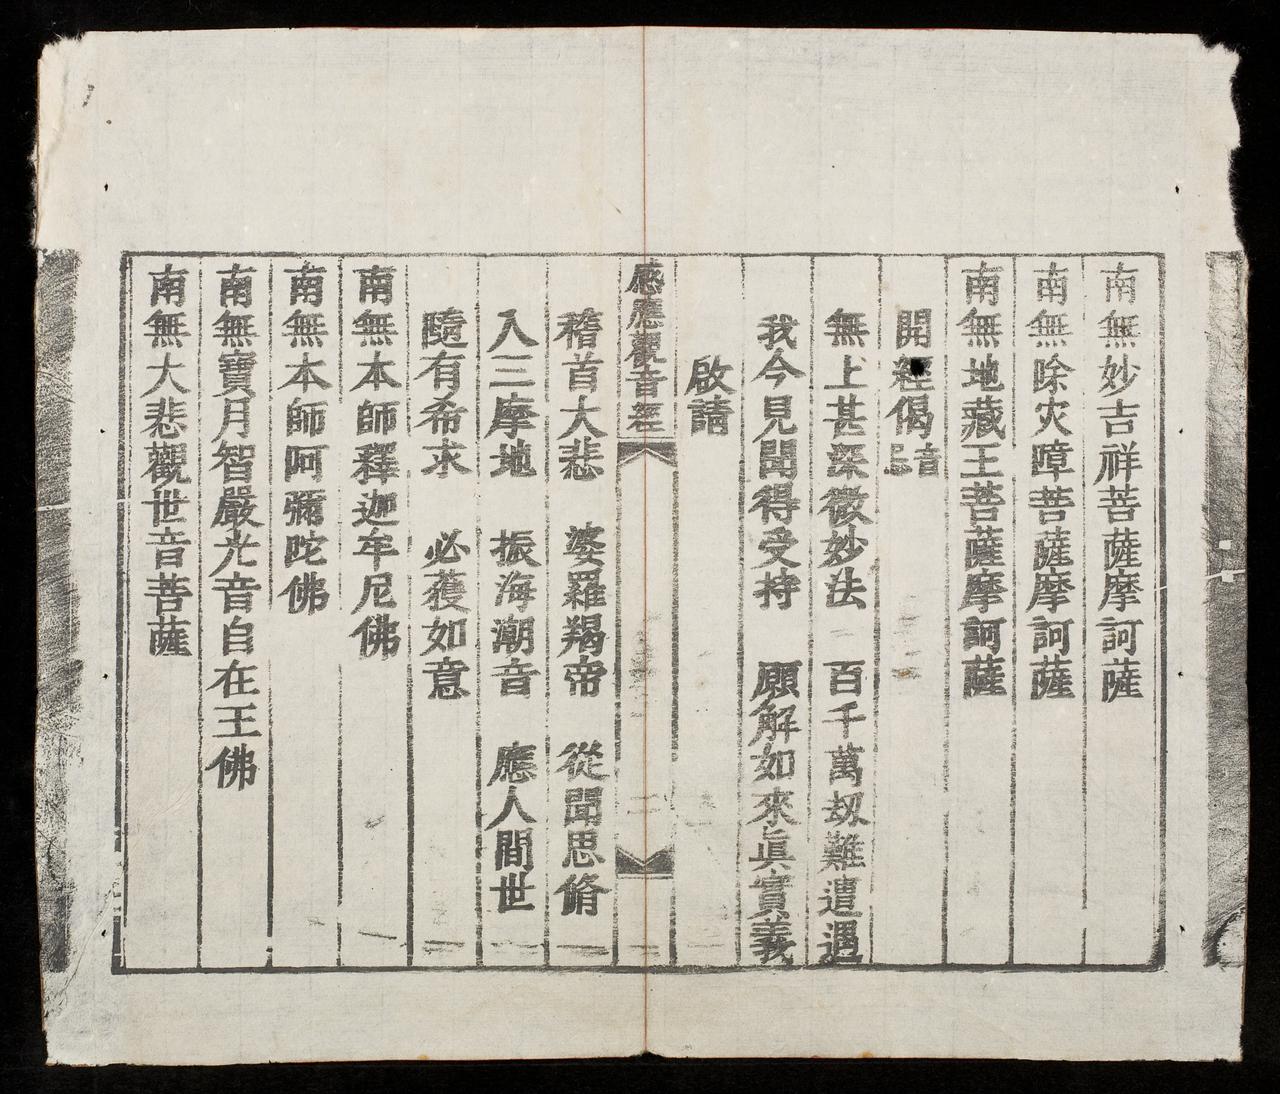 南無妙吉祥菩薩摩訶薩
南無除灾障菩薩摩訶薩
南無地藏王菩薩摩訶薩
開經偈 音
無上甚深微妙法 百千萬刼難遭遇
我今見聞得受持 願解如來眞實義
啟請
感應觀音経
稽首大悲 婆羅羯帝 從聞思脩
入三摩地 振海潮音 應人間世
隨有希求 必獲如意
南無本師釋迦牟尼佛
南無本師阿彌陀佛
南無寶月智嚴光音自在王佛
南無大悲觀世音菩薩